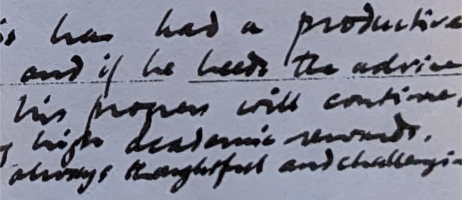 is has had a productive
and if he heeds the advice
his progress will continue,
high academic rewards.
always thoughtful and challengi